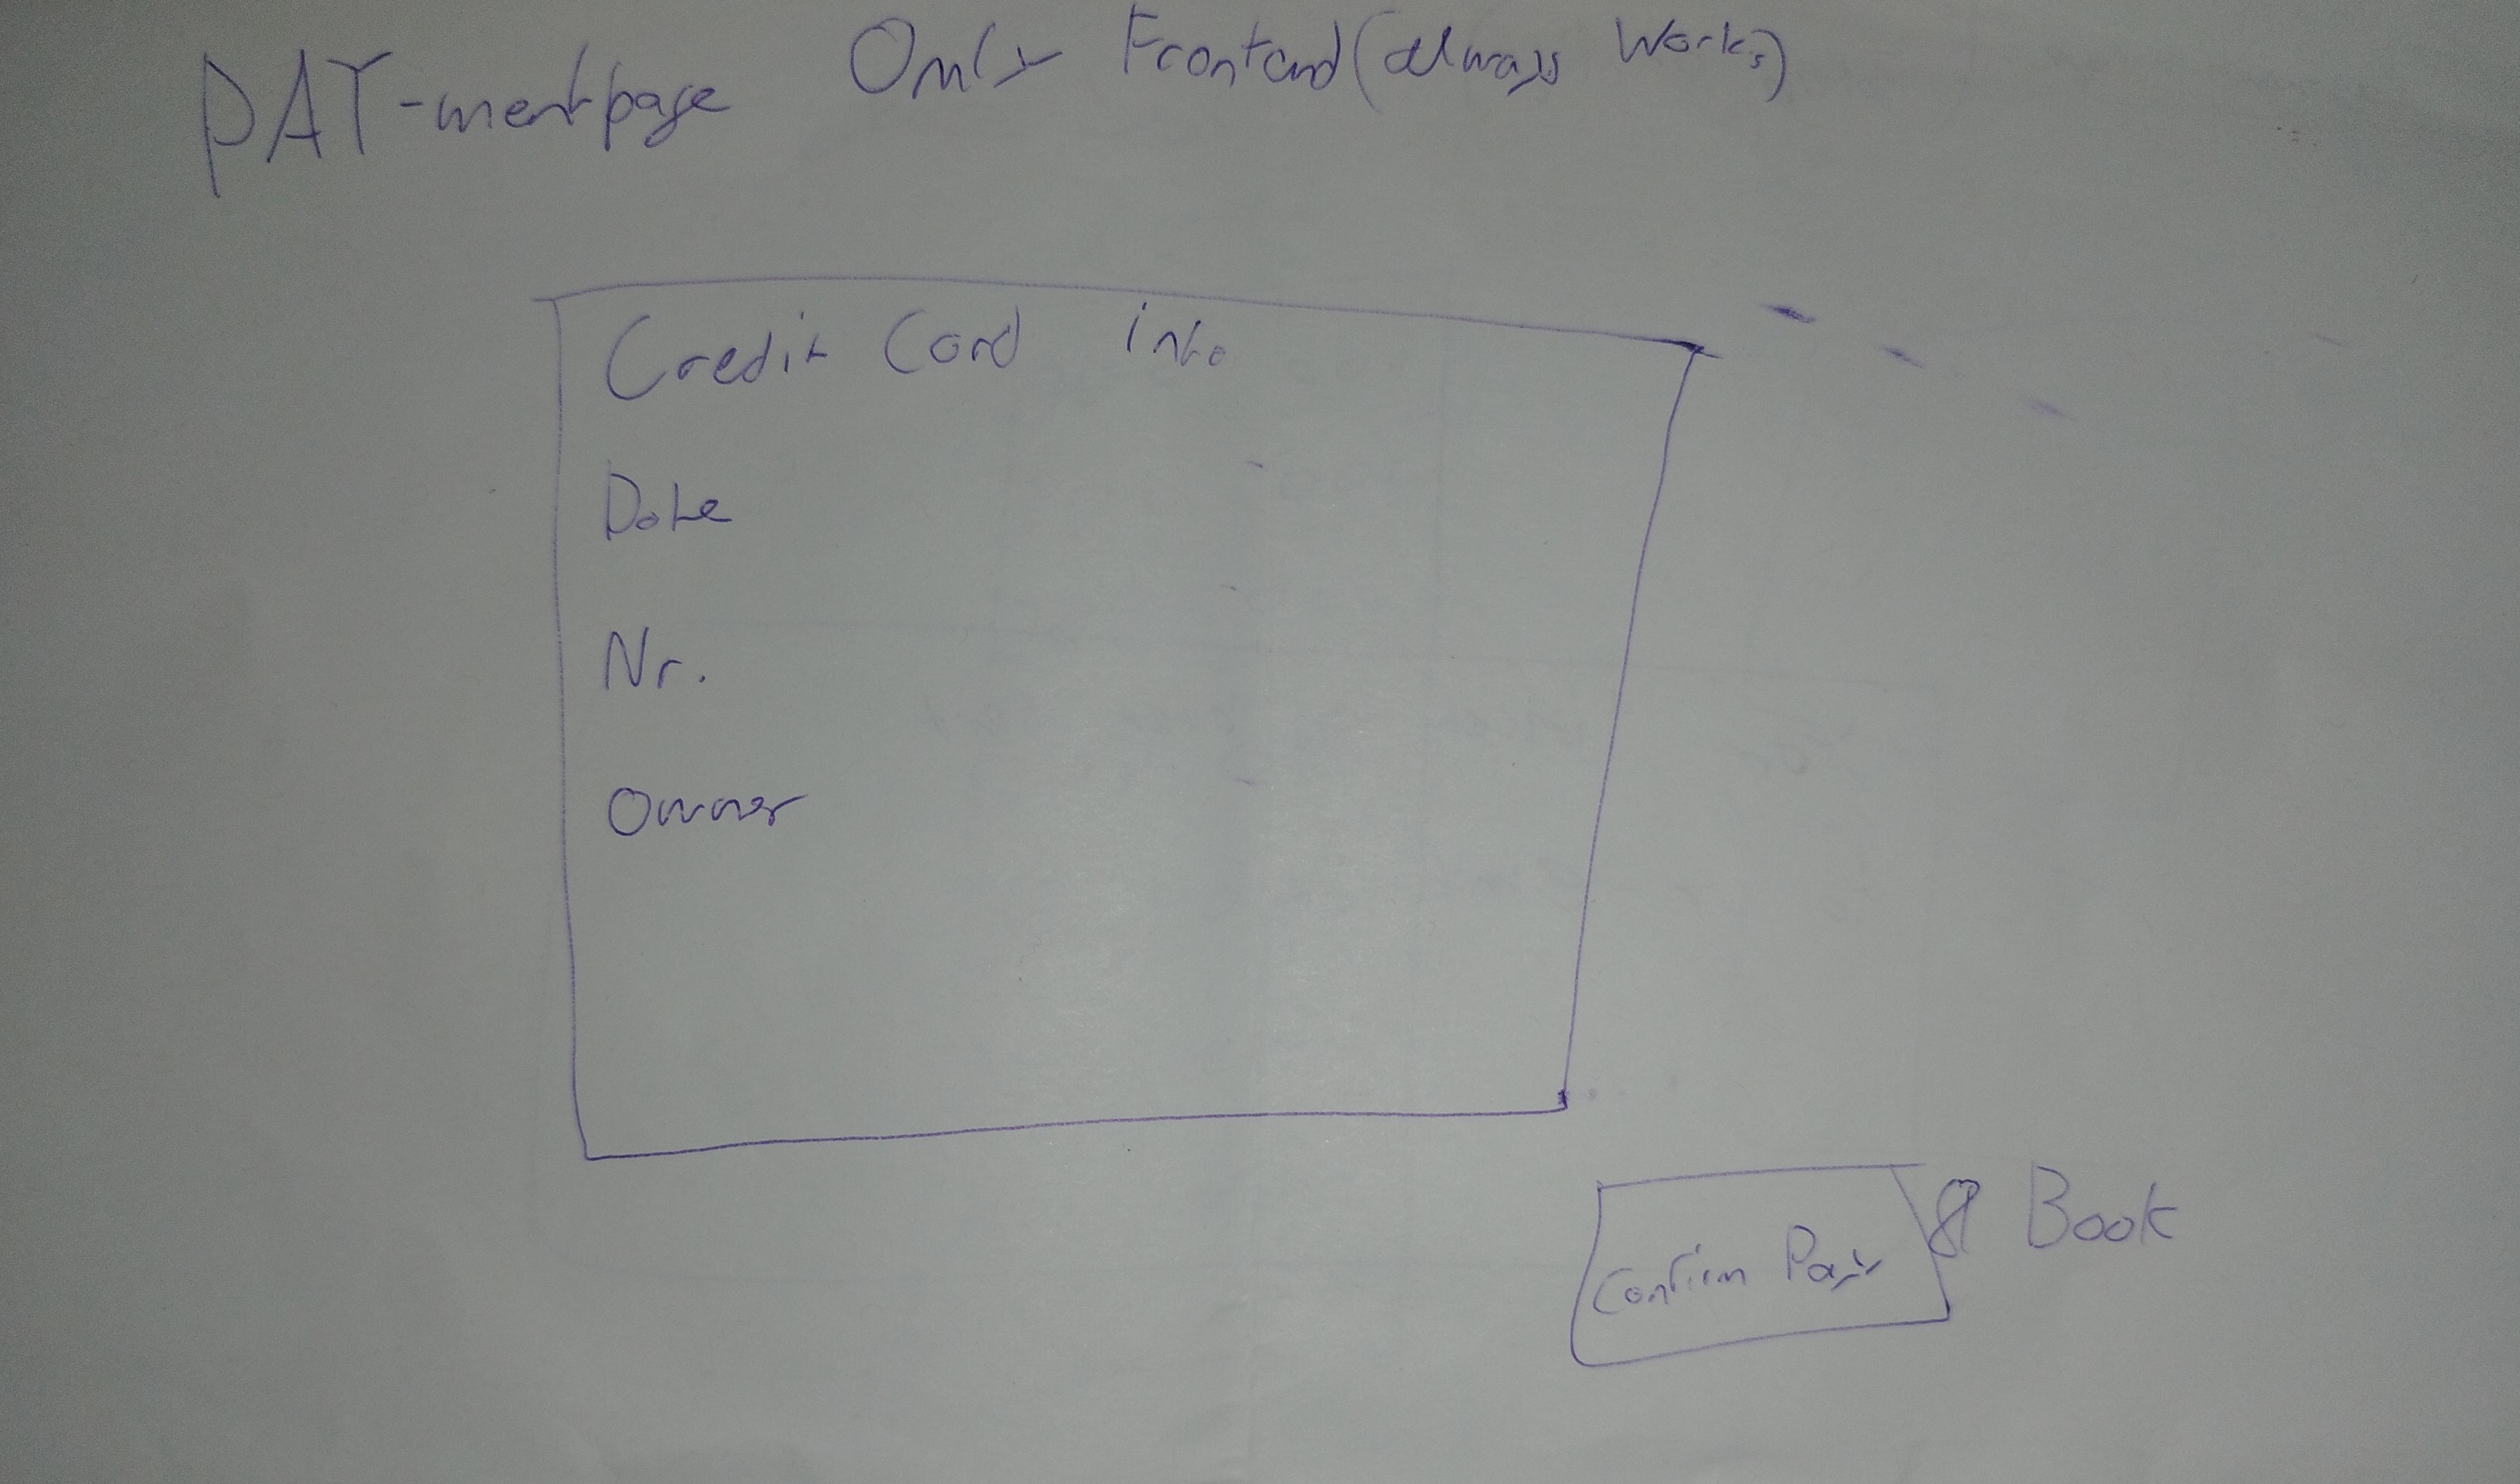 PAY-mentpage Only Frontend (always Works)
Credit Card info
Date
Nr.
Owner
Confirm Pay & Book